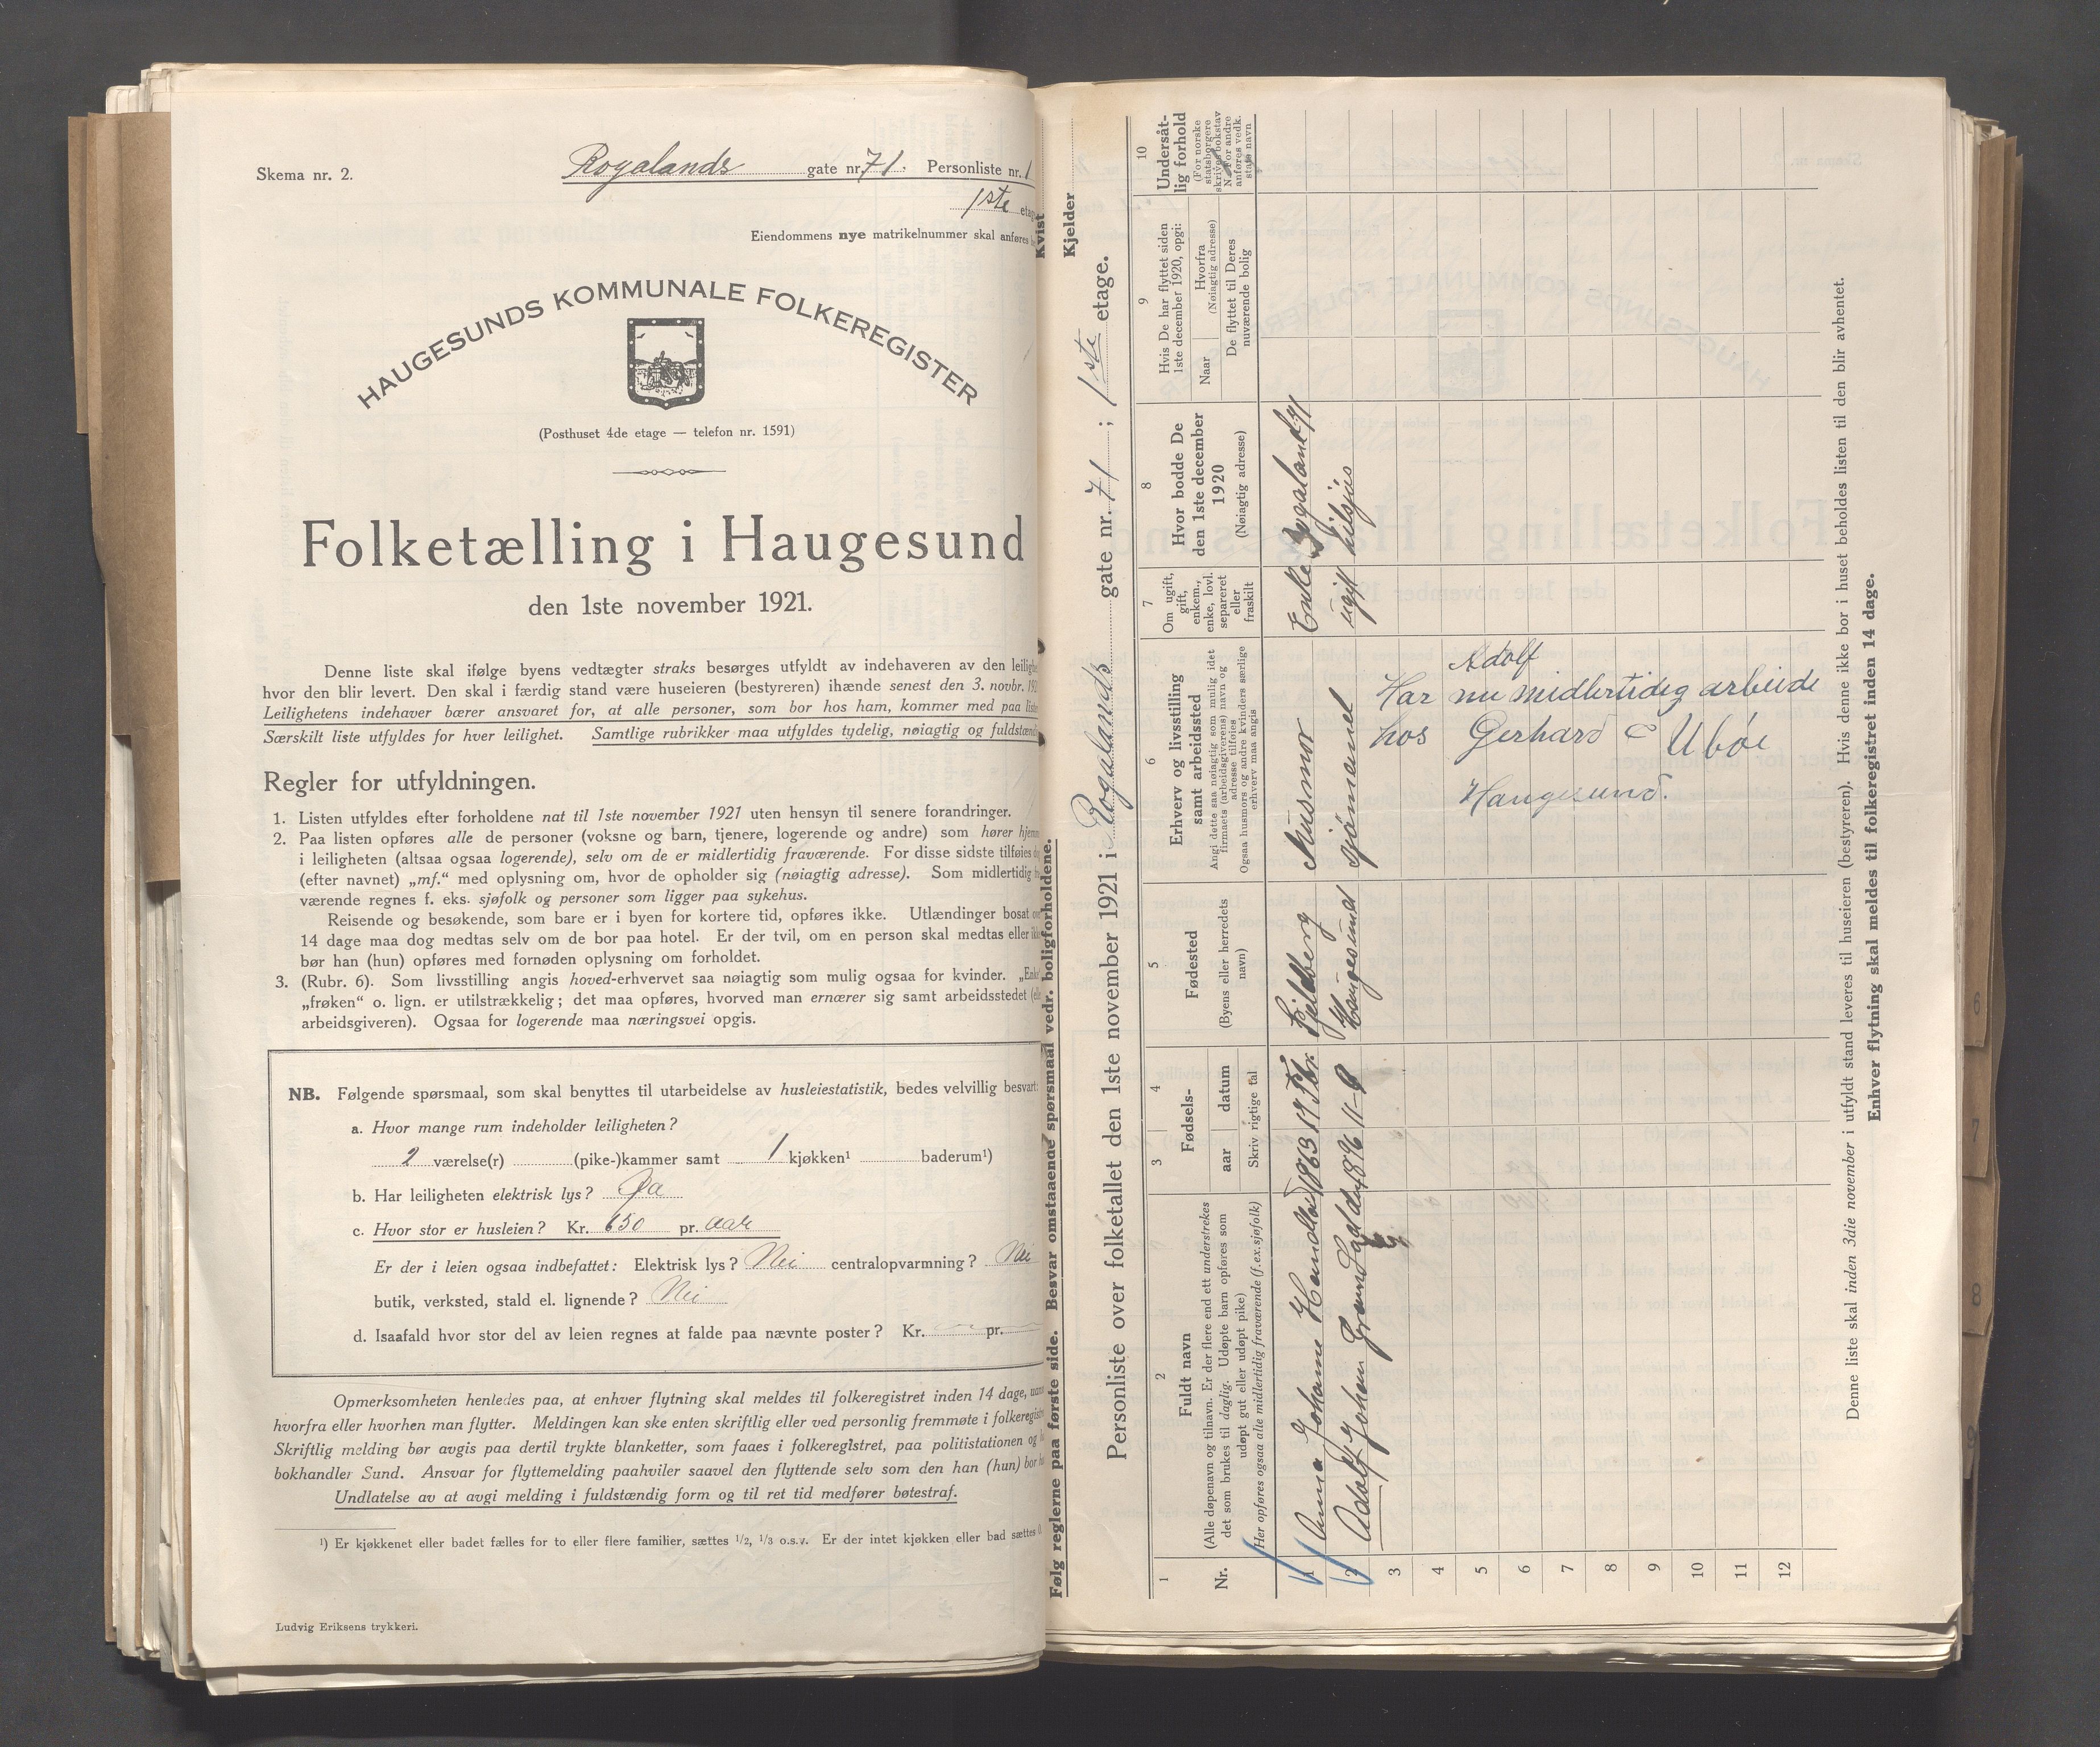 Skema nr. 2.
Rogalands gate nr. 71. Personliste nr. 1
1ste etage
Eiendommens nye matrikelnummer skal anføres
HAUGESUNDS KOMMUNALE FOLKEREGISTER
(Posthuset 4de etage — telefon nr. 1591)
Folketælling i Haugesund
den 1ste november 1921.
Denne liste skal ifølge byens vedtægter straks besørges utfyldt av indehaveren av den
hvor den blir levert. Den skal i færdig stand være huseieren (bestyreren) ihænde senest den 3. novbr.
Leilighetens indehaver bærer ansvaret for, at alle personer, som bor hos ham, kommer med paa
Særskilt liste utfyldes for hver leilighet. Samtlige rubrikker maa utfyldes tydelig, nøiagtig og
Regler for utfyldningen.
1. Listen utfyldes efter forholdene nat til 1ste november 1921 uten hensyn til senere forandringer.
2. Paa listen opføres alle de personer (voksne og barn, tjenere, logerende og andre) som hører
i leiligheten (altsaa ogsaa logerende), selv om de er midlertidig fraværende. For disse sidste tilføies
(efter navnet) „mf.“ med oplysning om, hvor de opholder sig (nøiagtig adresse). Som midlertidig
værende regnes f. eks. sjøfolk og personer som ligger paa sykehus.
Reisende og besøkende, som bare er i byen for kortere tid, opføres ikke. Utlændinger bosat
14 dage maa dog medtas selv om de bor paa hotel. Er der tvil, om en person skal medtas eller
bør han (hun) opføres med fornøden oplysning om forholdet.
3. (Rubr. 6). Som livsstilling angis hoved-erhvervet saa nøiagtig som mulig ogsaa for kvinder.
„frøken“ o. lign. er utilstrækkelig; det maa opføres, hvorved man ernærer sig samt arbeidsstedet
arbeidsgiveren). Ogsaa for logerende maa næringsvei opgis.
NB. Følgende spørsmaal, som skal benyttes til utarbeidelse av husleiestatistik, bedes velvillig besvart:
a. Hvor mange rum indeholder leiligheten?
2 værelse(r) (pike-)kammer samt 1 kjøkken¹ baderum¹)
b. Har leiligheten elektrisk lys? Ja
c. Hvor stor er husleien? Kr. 650 pr. aar
Er der i leien ogsaa indbefattet: Elektrisk lys? Nei centralopvarmning? Nei
butik, verksted, stald el. lignende? Nei
d. Isaafald hvor stor del av leien regnes at falde paa nævnte poster? Kr. pr.
Opmerksomheten henledes paa, at enhver flytning skal meldes til folkeregistret inden 14 dage,
hvorfra eller hvorhen man flytter. Meldingen kan ske enten skriftlig eller ved personlig fremmøte i
Skriftlig melding bør avgis paa dertil trykte blanketter, som faaes i folkeregistret, paa politistationen og
bokhandler Sund. Ansvar for flyttemelding paahviler saavel den flyttende selv som den han (hun) bor
Undlatelse av at avgi melding i fuldstændig form og til ret tid medfører bøtestraf.
¹) Er kjøkkenet eller badet fælles for to eller flere familier, sættes 1/2, 1/3 o.s.v. Er der intet kjøkken eller bad sættes 0.
Ludvig Eriksens trykkeri.
Følg reglerne paa første side. Besvar omstaaende spørsmaal vedr. boligforholdene.
Kvist
Kjelder
Personliste over folketallet den 1ste november 1921 i Rogalands gate nr. 71 ; 1ste etage.
1
Nr.
2
Fuldt navn
(Alle døpenavn og tilnavn. Er der flere end ett understrekes
det som brukes til daglig. Udøpte barn opføres som
udøpt gut eller udøpt pike)
Her opføres ogsaa alle midlertidig fraværende (f.ex. sjøfolk)
3 4
Fødsels-
aar datum
Skriv rigtige tal
5
Fødested
(Byens eller herredets
navn)
6
Erhverv og livsstilling
samt arbeidssted
Angi dette saa nøiagtig som mulig idet
firmaets (arbeidsgiverens) navn og
adresse tilføies
Ogsaa husmors og andre kvinders særlige
erhverv maa angis
7
Om ugift,
gift,
enkem.,
enke, lovl.
separeret
eller
fraskilt
8
Hvor bodde De
den 1ste december
1920
(Nøiagtig adresse)
9
Hvis De har flyttet siden
1ste december 1920, opgi:
Naar
Hvorfra
(Nøiagtig adresse)
De flyttet til Deres
nuværende bolig
10
Undersåt-
lig forhold
(For norske
statsborgere
skrives bokstav
N. For andre
anføres vedk.
stats navn
1 Anna Johanne 1863 17 Fbr. Fjeldberg Husmor Enke Rogalands 71
2 Adolf Johan 1896 11-8 Haugesund sjømannd ugift tilsjøs
Adolf
Har nu midlertidig arbeide
hos Gerhard Ubøe
Haugesund.
3
4
5
6
7
8
9
10
11
12
Denne liste skal inden 3die november i utfyldt stand leveres til huseieren (bestyreren). Hvis denne ikke bor i huset beholdes listen til den blir avhentet.
Enhver flytning skal meldes til folkeregistret inden 14 dage.
6
7
8